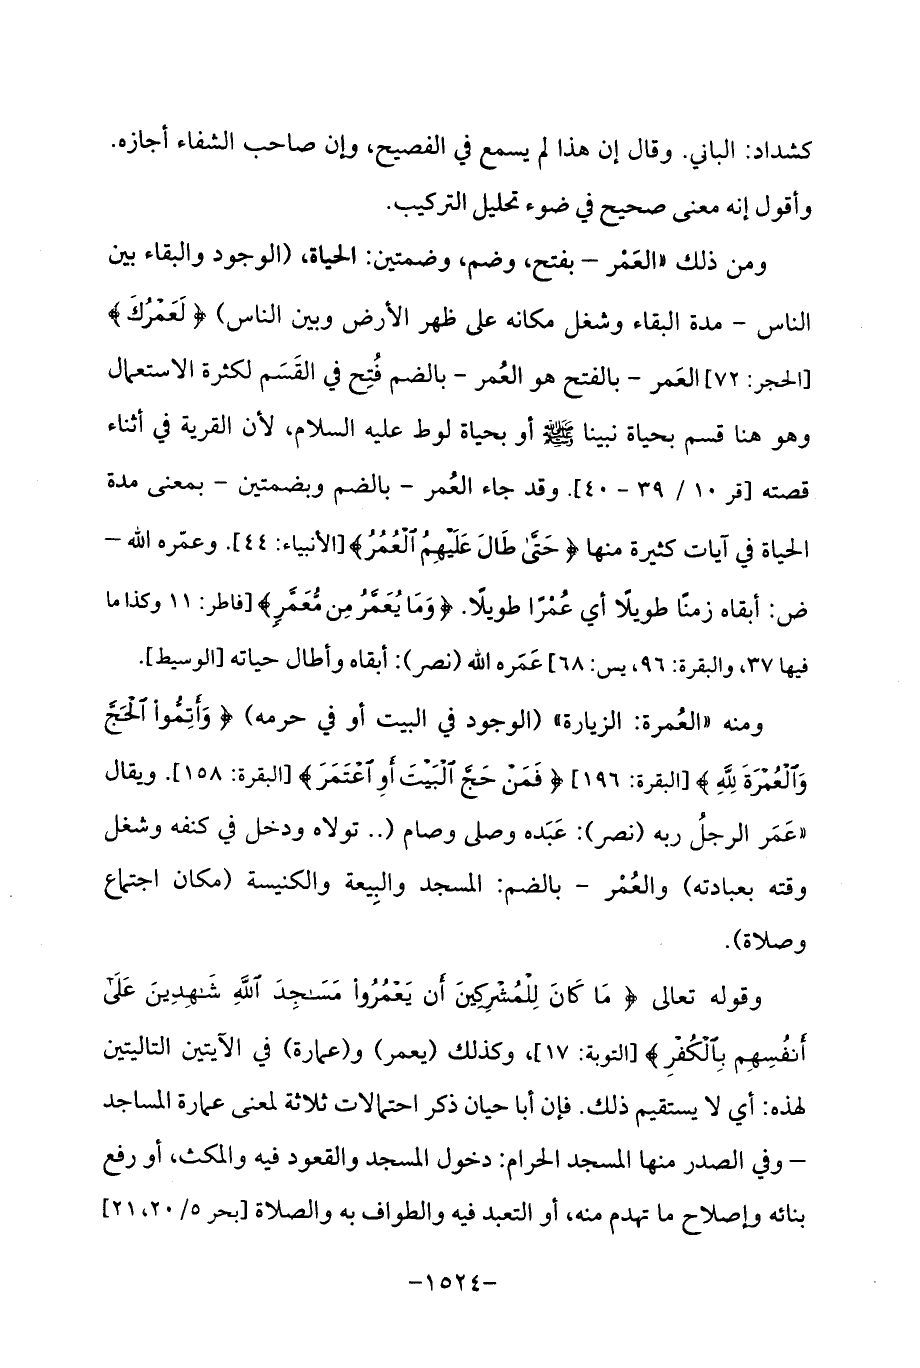 كشداد: الباني. وقال إن هذا لم يسمع في الفصيح، وإن صاحب الشفاء أجازه.
وأقول إنه معنى صحيح في ضوء تحليل التركيب.
ومن ذلك «العَمْر – بفتح، وضم، وضمتين: الحياة، (الوجود والبقاء بين
الناس – مدة البقاء وشغل مكانه على ظهر الأرض وبين الناس) ﴿ لَعَمْرُكَ ﴾
[الحجر: ٧٢] العَمر – بالفتح هو العُمر – بالضم فُتِح في القَسَم لكثرة الاستعمال
وهو هنا قسم بحياة نبينا ﷺ أو بحياة لوط عليه السلام، لأن القرية في أثناء
قصته [قر ١٠ / ٣٩ – ٤٠]. وقد جاء العُمر – بالضم وبضمتين – بمعنى مدة
الحياة في آيات كثيرة منها ﴿ حَتَّىٰ طَالَ عَلَيْهِمُ ٱلْعُمُرُ ﴾ [الأنبياء: ٤٤]. وعمّره الله –
ض: أبقاه زمنًا طويلًا أي عُمْرًا طويلًا. ﴿ وَمَا يُعَمَّرُ مِن مُّعَمَّرٍ ﴾ [فاطر: ١١ وكذا ما
فيها ٣٧، والبقرة: ٩٦، يس: ٦٨] عَمَره الله (نصر): أبقاه وأطال حياته [الوسيط].
ومنه «العُمرة: الزيارة» (الوجود في البيت أو في حرمه) ﴿ وَأَتِمُّوا۟ ٱلْحَجَّ
وَٱلْعُمْرَةَ لِلَّهِ ﴾ [البقرة: ١٩٦] ﴿ فَمَنْ حَجَّ ٱلْبَيْتَ أَوِ ٱعْتَمَرَ ﴾ [البقرة: ١٥٨]. ويقال
«عَمَر الرجلُ ربه (نصر): عَبَده وصلى وصام (.. تولاه ودخل في كنفه وشغل
وقته بعبادته) والعُمْر – بالضم: المسجد والبِيعة والكنيسة (مكان اجتماع
وصلاة).
وقوله تعالى ﴿ مَا كَانَ لِلْمُشْرِكِينَ أَن يَعْمُرُوا۟ مَسَـٰجِدَ ٱللَّهِ شَـٰهِدِينَ عَلَىٰٓ
أَنفُسِهِم بِٱلْكُفْرِ ﴾ [التوبة: ١٧]، وكذلك (يعمر) و(عمارة) في الآيتين التاليتين
لهذه: أي لا يستقيم ذلك. فإن أبا حيان ذكر احتمالات ثلاثة لمعنى عمارة المساجد
– وفي الصدر منها المسجد الحرام: دخول المسجد والقعود فيه والمكث، أو رفع
بنائه وإصلاح ما تهدم منه، أو التعبد فيه والطواف به والصلاة [بحر ٥/ ٢٠، ٢١]
–١٥٢٤–